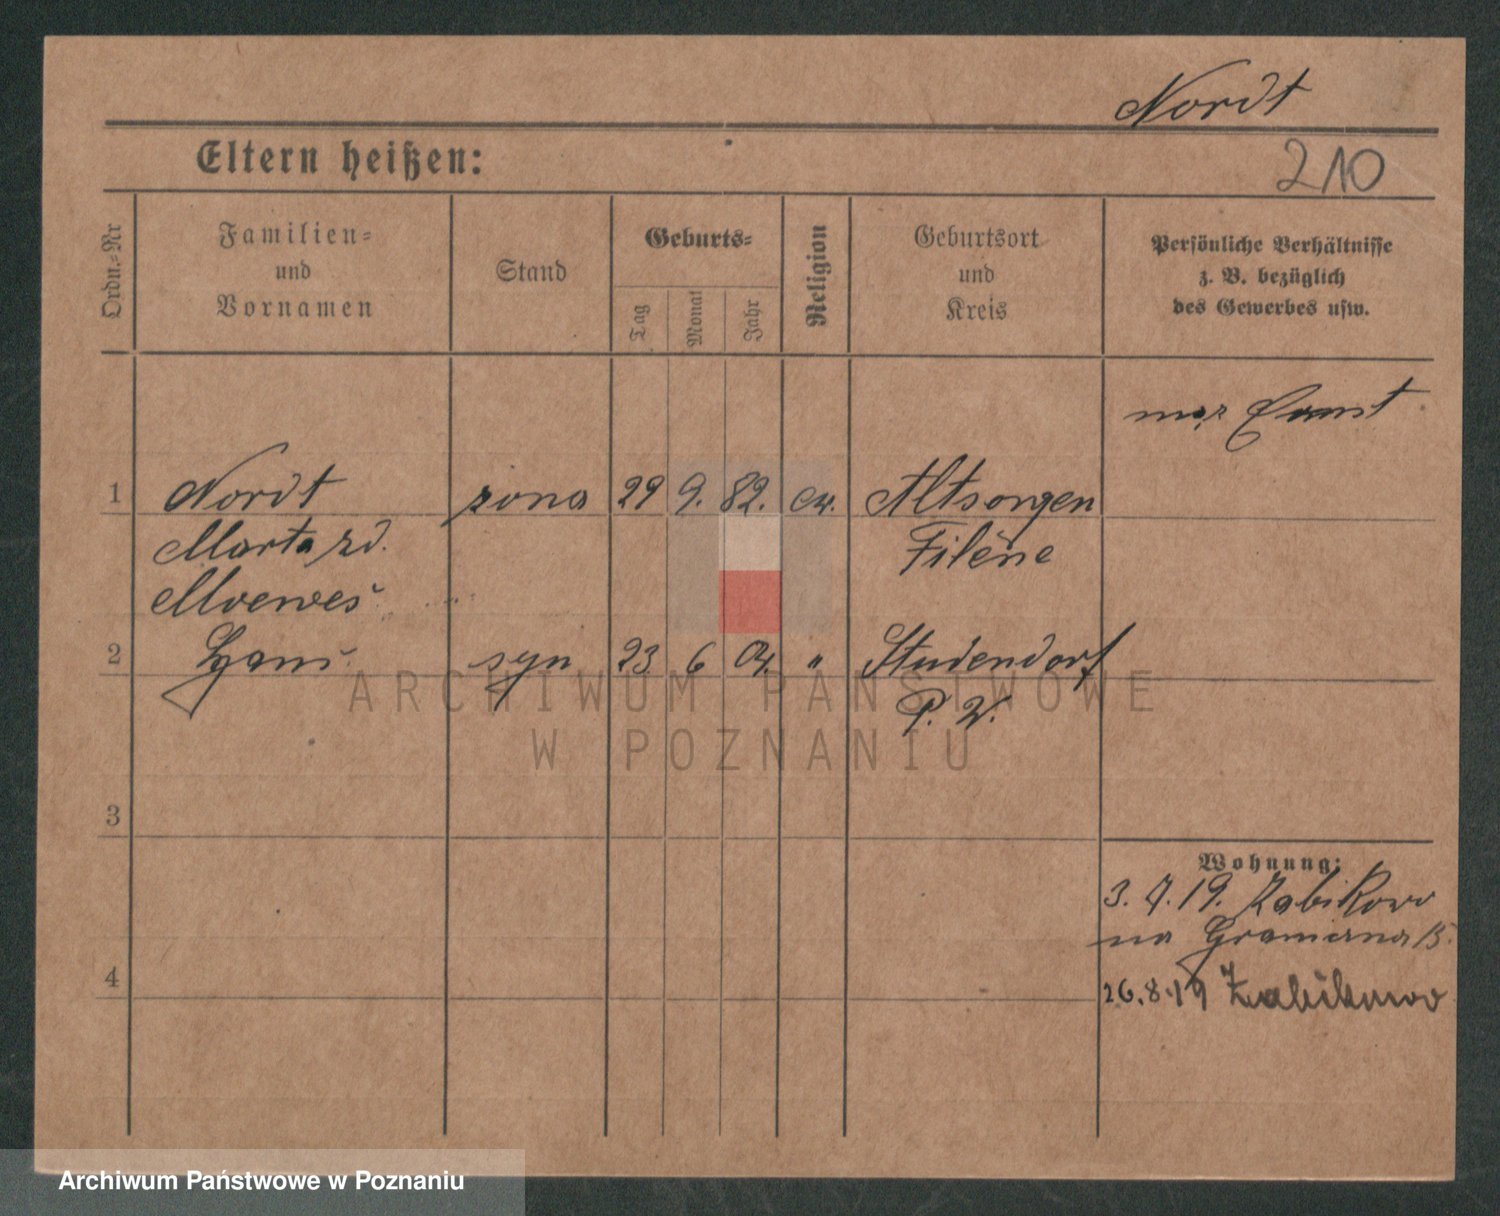 Nordt
Eltern heißen:
210
Ordn.-Nr
Familien-
und
Vornamen
Stand
Geburts-
Tag
Monat
Jahr
Religion
Geburtsort
und
Kreis
Persönliche Verhältnisse
z. B. bezüglich
des Gewerbes usw.
mąż Ernst
1 Nordt żona 29 9. 82. ew. Altsorgen
Marta zd. Filehne
Moewes
2 Hans syn 23 6 04. " Studendorf
P. W.
ARCHIWUM PAŃSTWOWE
W POZNANIU
3
Wohnung:
3. 7. 19. Żabikowo
na
4
26.8.19 Żabikowo
Archiwum Państwowe w Poznaniu